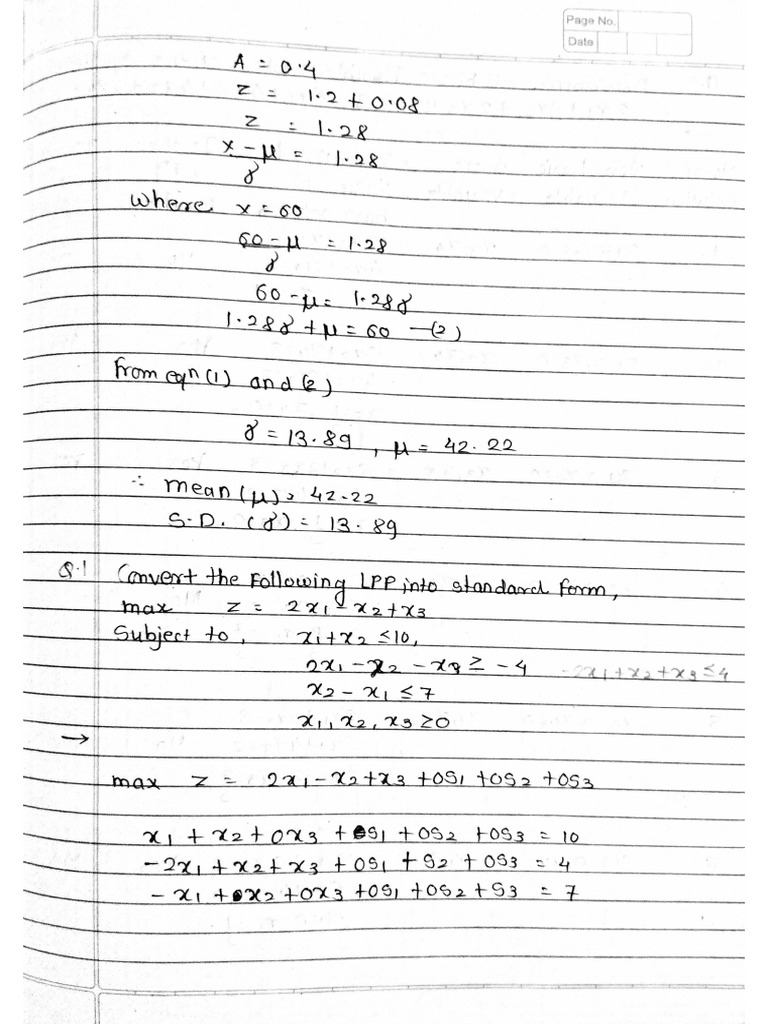 Page No.
Date
A = 0.4
z = 1.2 + 0.08
z = 1.28
x - μ / γ = 1.28
where x = 60
60 - μ / γ = 1.28
60 - μ = 1.28γ
1.28γ + μ = 60 —(2)
from eqn (1) and (2)
γ = 13.89, μ = 42.22
∴ mean (μ) = 42.22
S.D. (γ) = 13.89
Q.1 Convert the Following LPP, into standard form,
max z = 2x1 - x2 + x3
Subject to, x1 + x2 ≤ 10,
2x1 - x2 - x3 ≥ -4 -2x1 + x2 + x3 ≤ 4
x2 - x1 ≤ 7
x1, x2, x3 ≥ 0
→
max z = 2x1 - x2 + x3 + 0S1 + 0S2 + 0S3
x1 + x2 + 0x3 + S1 + 0S2 + 0S3 = 10
-2x1 + x2 + x3 + 0S1 + S2 + 0S3 = 4
-x1 + x2 + 0x3 + 0S1 + 0S2 + S3 = 7